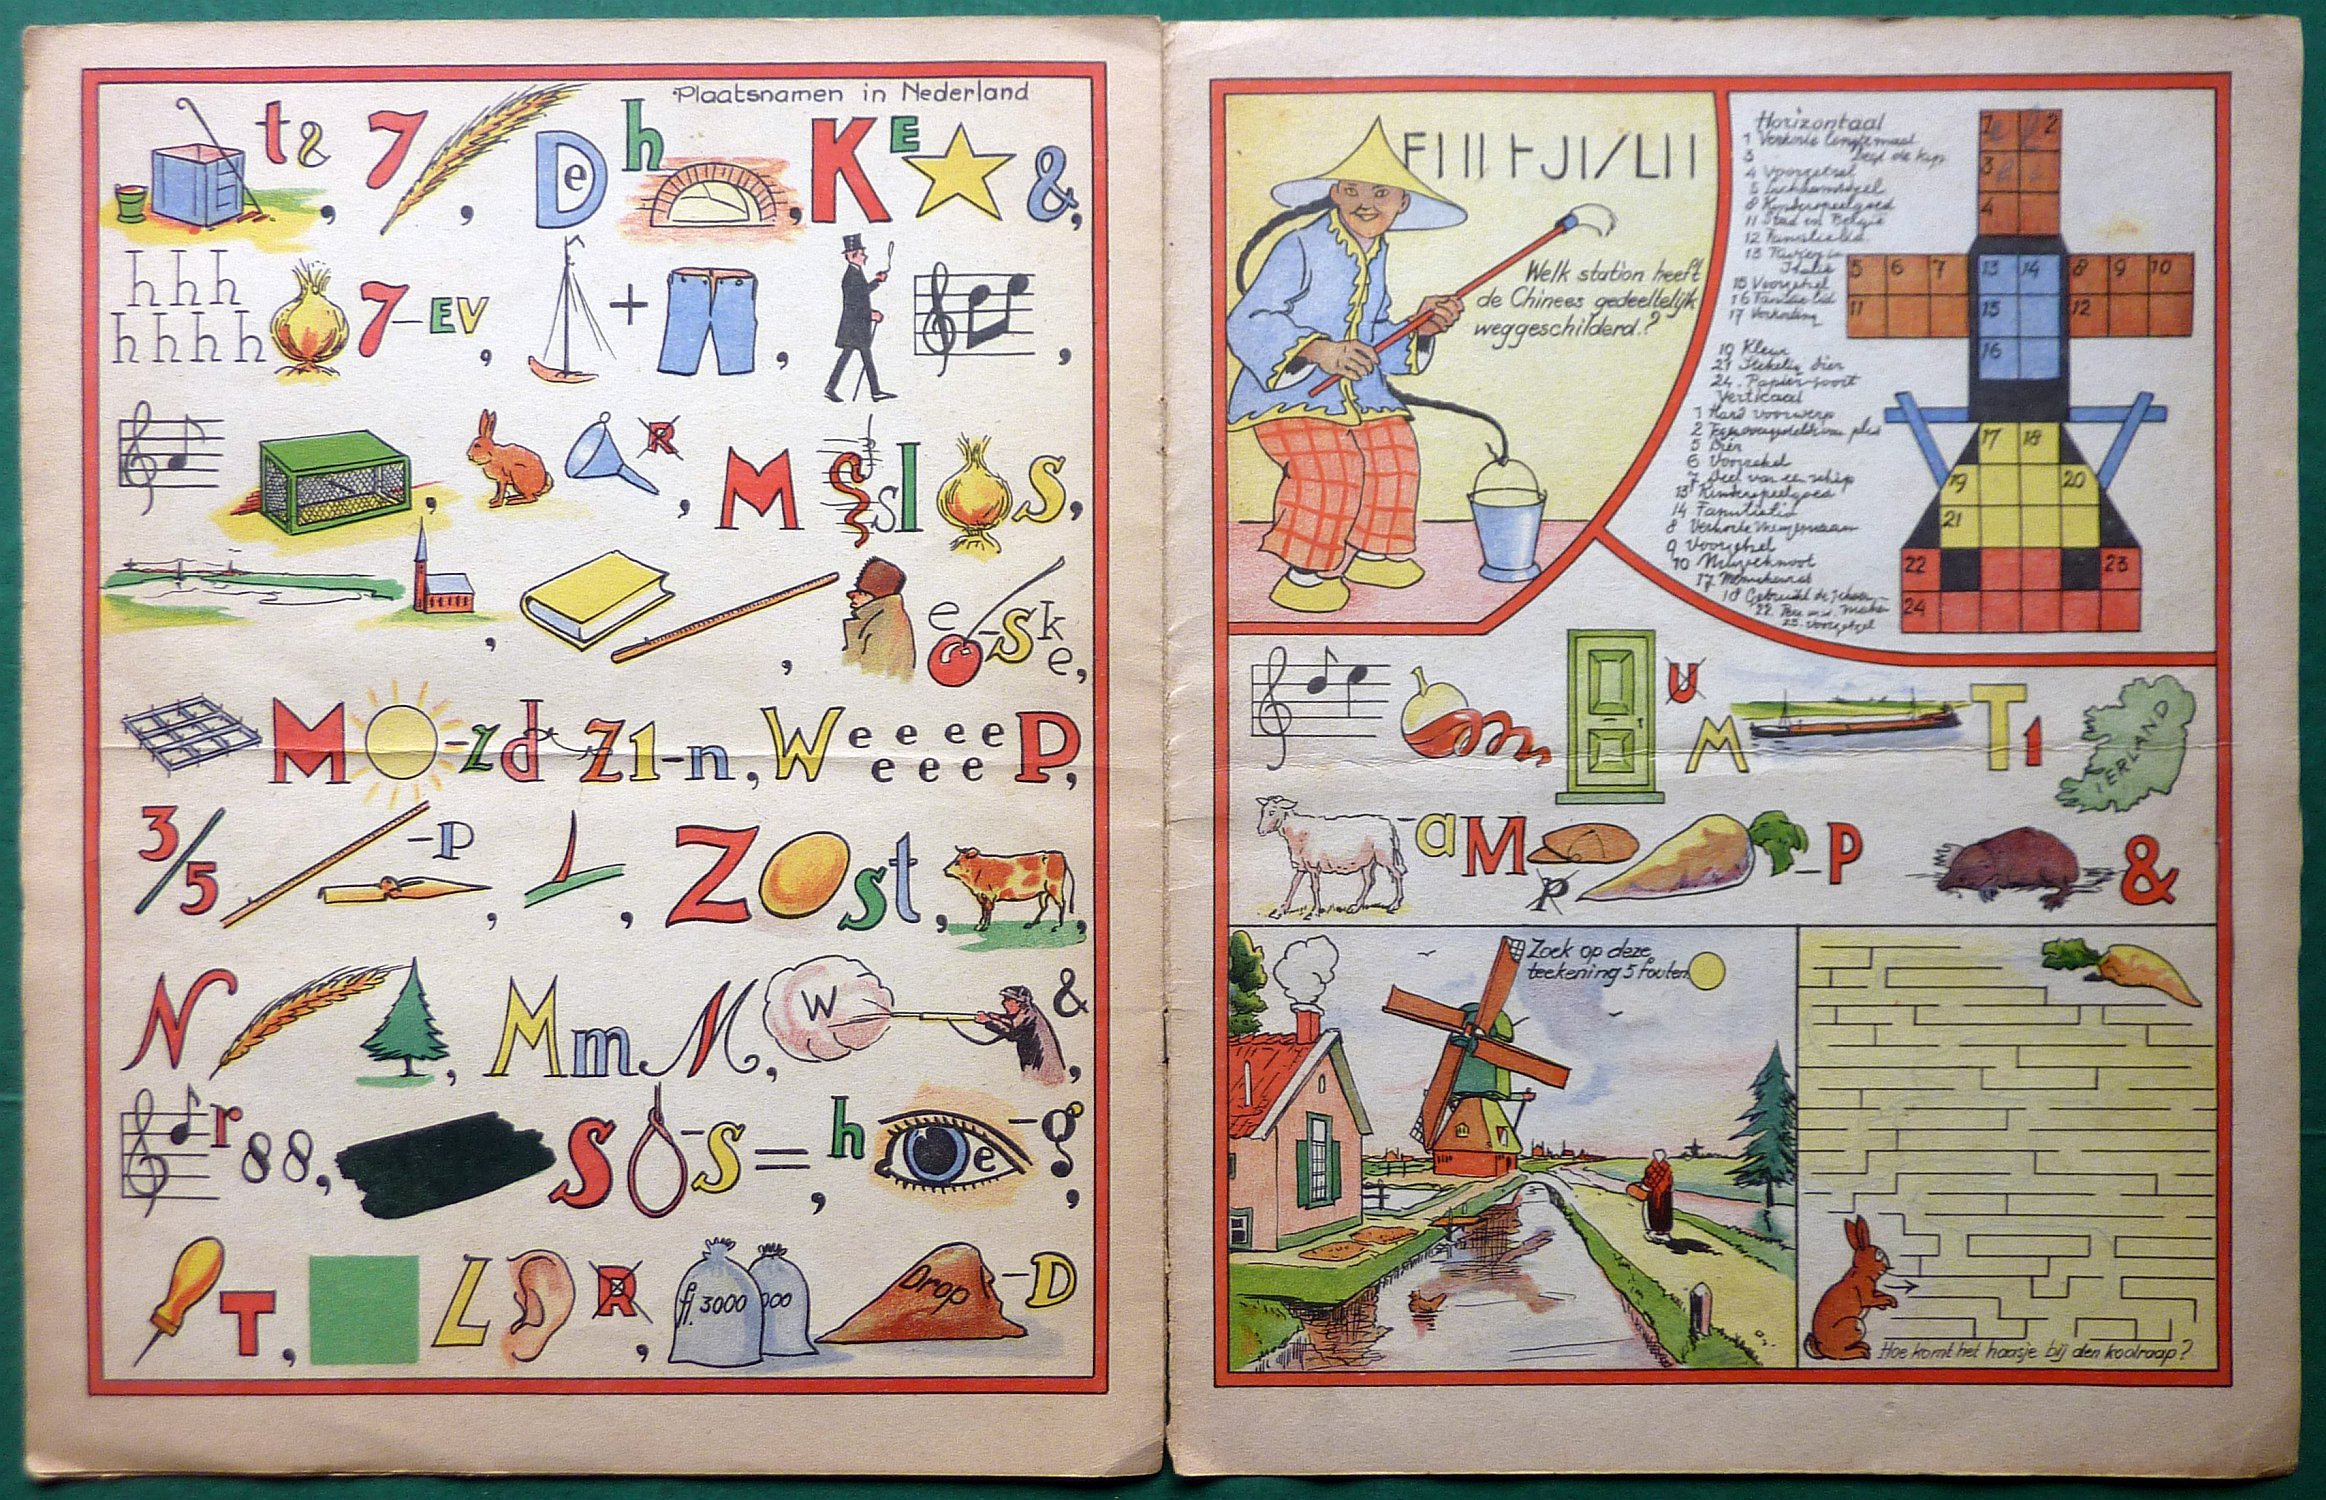 Plaatsnamen in Nederland
t &
, 7 , De h , K E &,
h h h
h h h h 7-EV , + , ,
, R , M S s l s,
, , e -s k e,
M -z d z 1-n, W e e e e e e e P,
3/5 -P , , Z st , ,
N , M m M, W & ,
r 8 8, S -s = , h e -g ,
T , L R , fl. 3000 000 Drop -D
Welk station heeft
de Chinees gedeeltelijk
weggeschilderd.?
Horizontaal
1 Verkorte lengtemaat
3 Legt de kip
4 Voorzetsel
5 Lichaamsdeel
8 Kinderspeelgoed
11 Stad en België
12 Familielid
13 Rivier in
Italie
15 Voorzetsel
16 Familie lid
17 Verkorting
19 Kleur
21 Stekelig dier
24. Papier-soort
Verticaal
1 Hard voorwerp
2 Tegenovergestelde van plus
5 Dier
6 Voorzetsel
7 Deel van een schip
13 Kinderspeelgoed
14 Familielid
8 Verkorte
9 Voorzetsel
10 Muzieknoot
17
18 Gebruikt de
22
23 Voorzetsel
1 2
3
4
5 6 7 13 14 8 9 10
11 15 12
16
17 18
19 20
21
22 23
24
U M T 1 IERLAND
-a M R -P &
Zoek op deze
teekening 5 fouten
Hoe komt het haasje bij den koolraap?